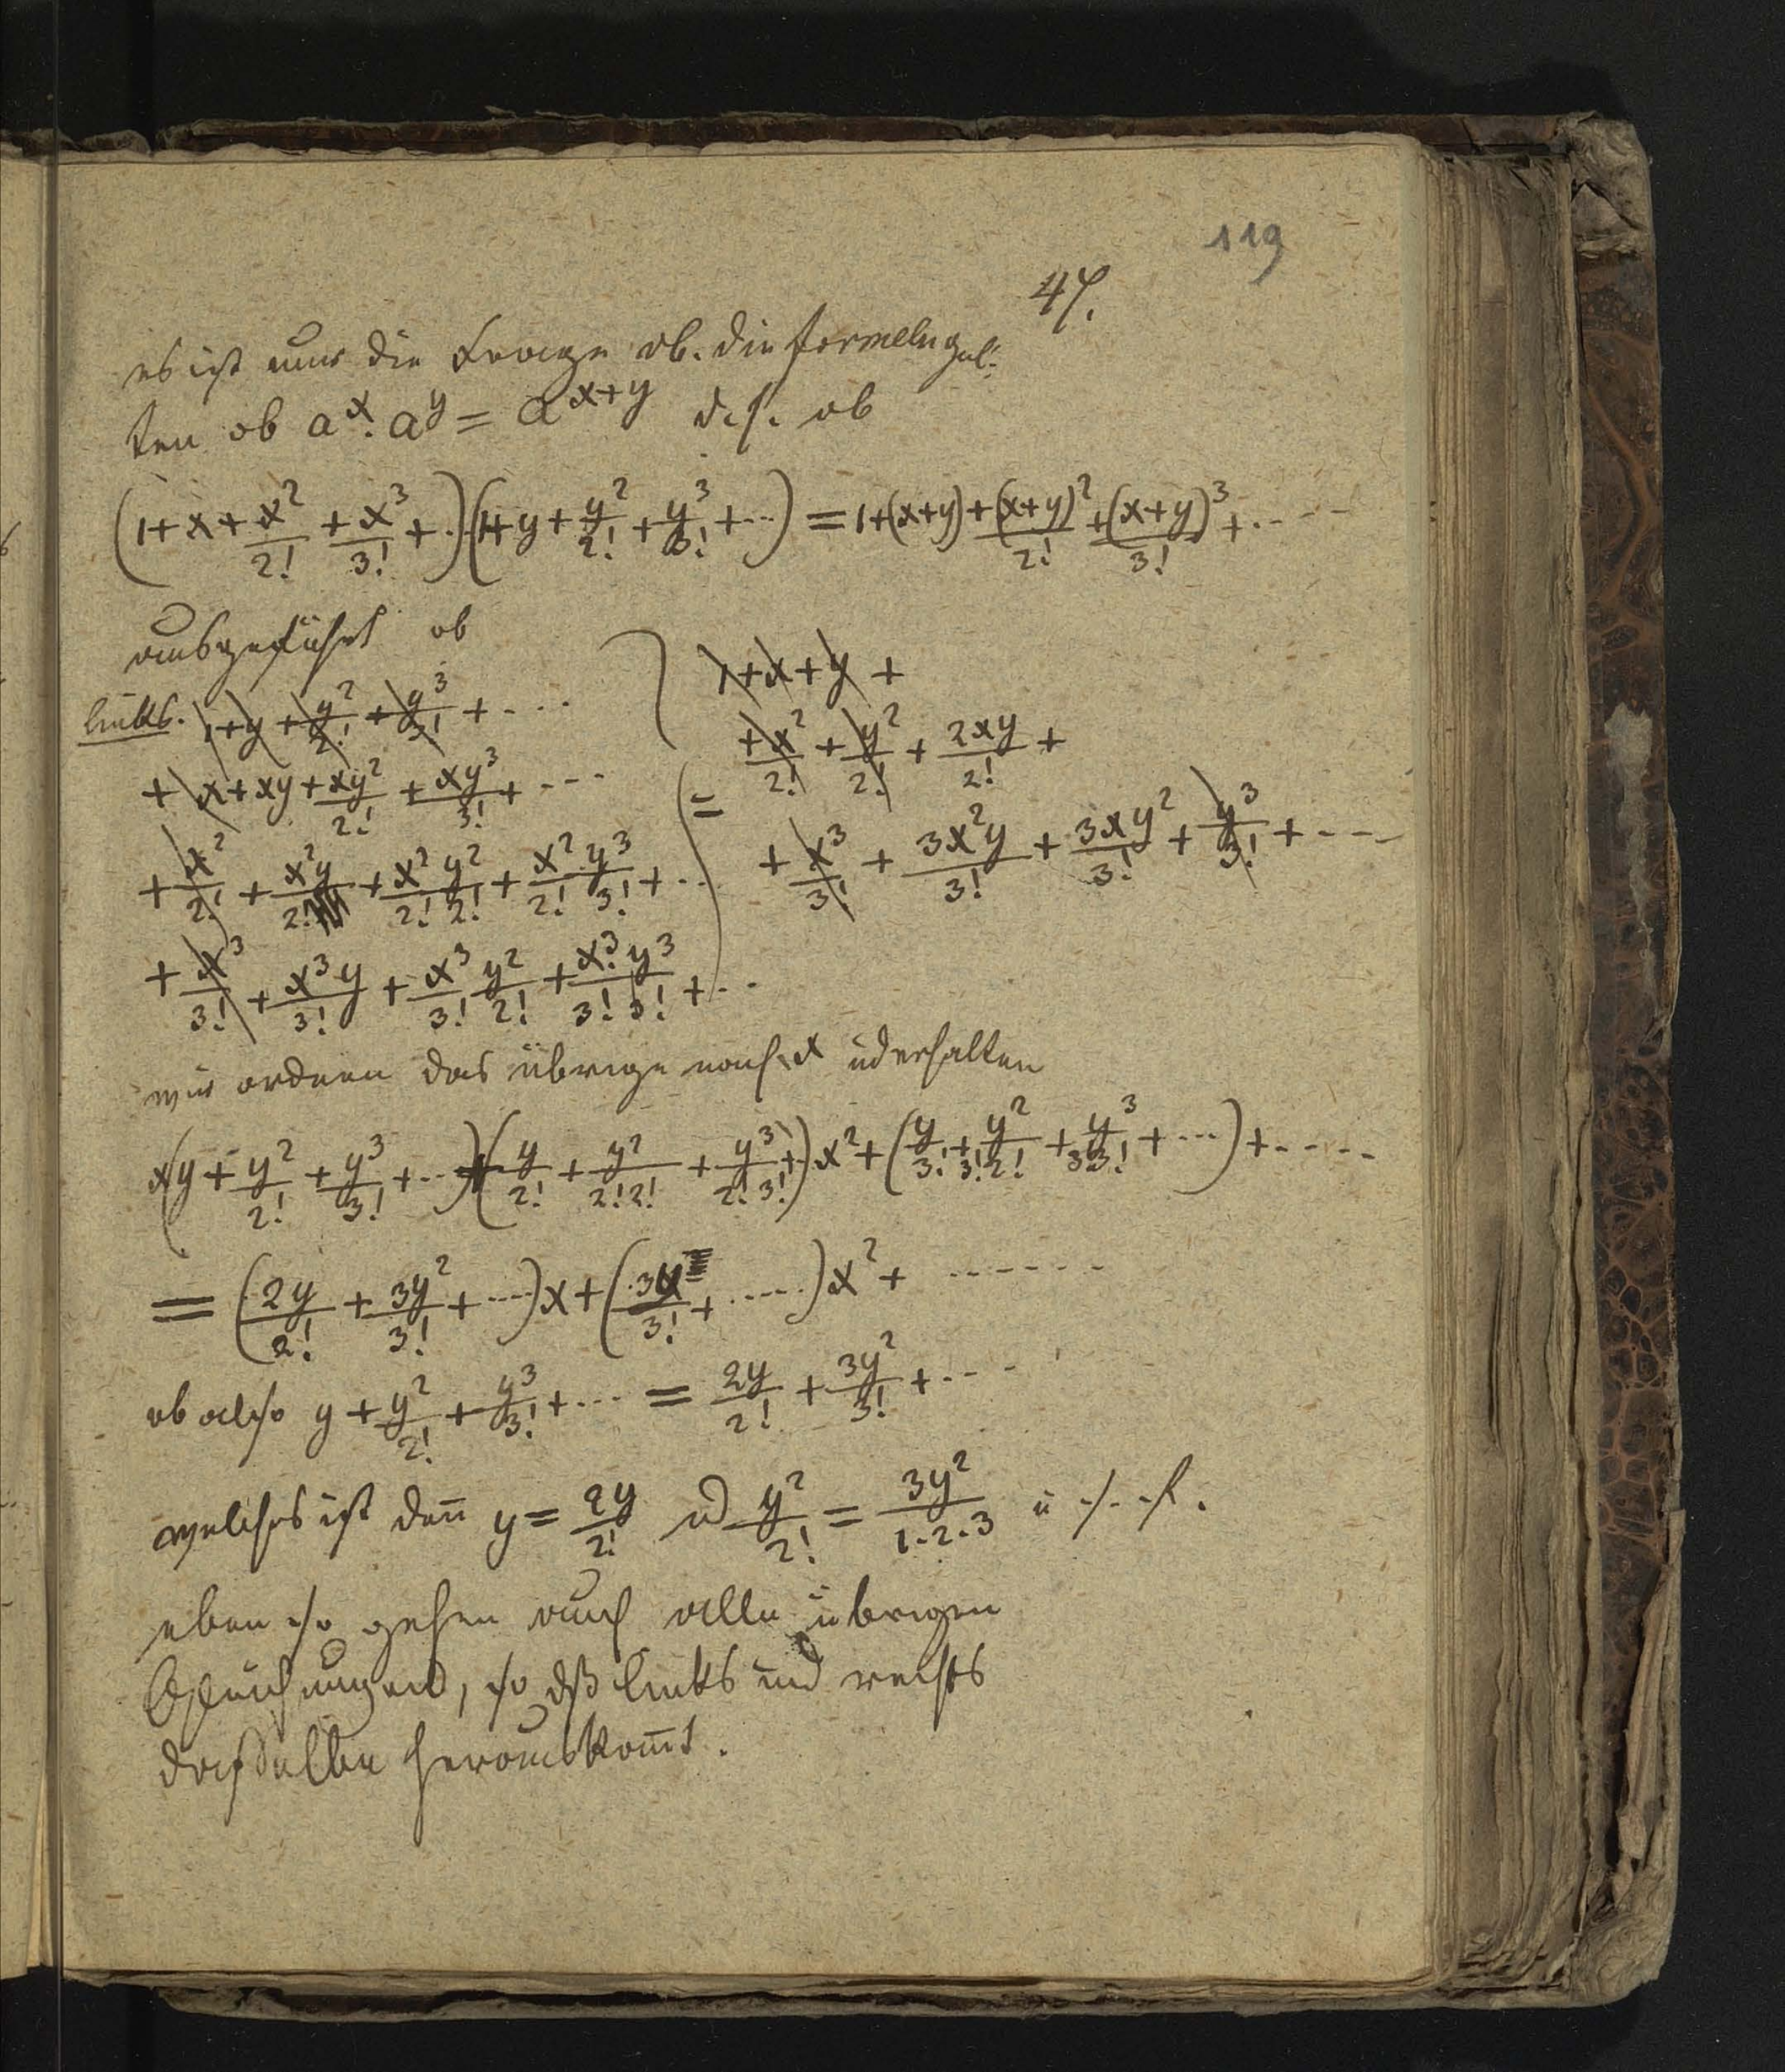 119
47.
es ist nun die Frage ob. die formeln gel-
ten ob a^x. a^y = a^{x+y} d.h. ob
(1+x+\frac{x^2}{2!}+\frac{x^3}{3!}+..)(1+y+\frac{y^2}{2!}+\frac{y^3}{3!}+...) = 1+(x+y)+\frac{(x+y)^2}{2!}+\frac{(x+y)^3}{3!}+.....
ausgeführt ob
links. 1+y+\frac{y^2}{2!}+\frac{y^3}{3!}+....
+x+xy+\frac{xy^2}{2!}+\frac{xy^3}{3!}+...
+\frac{x^2}{2!}+\frac{x^2y}{2!}+\frac{x^2}{2!}\frac{y^2}{2!}+\frac{x^2}{2!}\frac{y^3}{3!}+...
+\frac{x^3}{3!}+\frac{x^3y}{3!}+\frac{x^3}{3!}\frac{y^2}{2!}+\frac{x^3.y^3}{3!3!}+...
=
1+x+y+
+\frac{x^2}{2!}+\frac{y^2}{2!}+\frac{2xy}{2!}+
+\frac{x^3}{3!}+\frac{3x^2y}{3!}+\frac{3xy^2}{3!}+\frac{y^3}{3!}+....
wir ordnen das übrige nach x ud erhalten
x(y+\frac{y^2}{2!}+\frac{y^3}{3!}+...)+(\frac{y}{2!}+\frac{y^2}{2!2!}+\frac{y^3}{2!3!}+)x^2+(\frac{y}{3!}+\frac{y^2}{3!2!}+\frac{y^3}{3!3!}+...)+.....
=(\frac{2y}{2!}+\frac{3y^2}{3!}+....)x+(\frac{3y}{3!}+.....)x^2+.......
ob also y+\frac{y^2}{2!}+\frac{y^3}{3!}+... = \frac{2y}{2!}+\frac{3y^2}{3!}+....
welches ist den̄ y=\frac{2y}{2!} ud \frac{y^2}{2!}=\frac{3y^2}{1.2.3} u.s.f.
eben so gehen auch alle übrigen
Gleichungen, so dß links und rechts
dasselbe herauskom̄t.